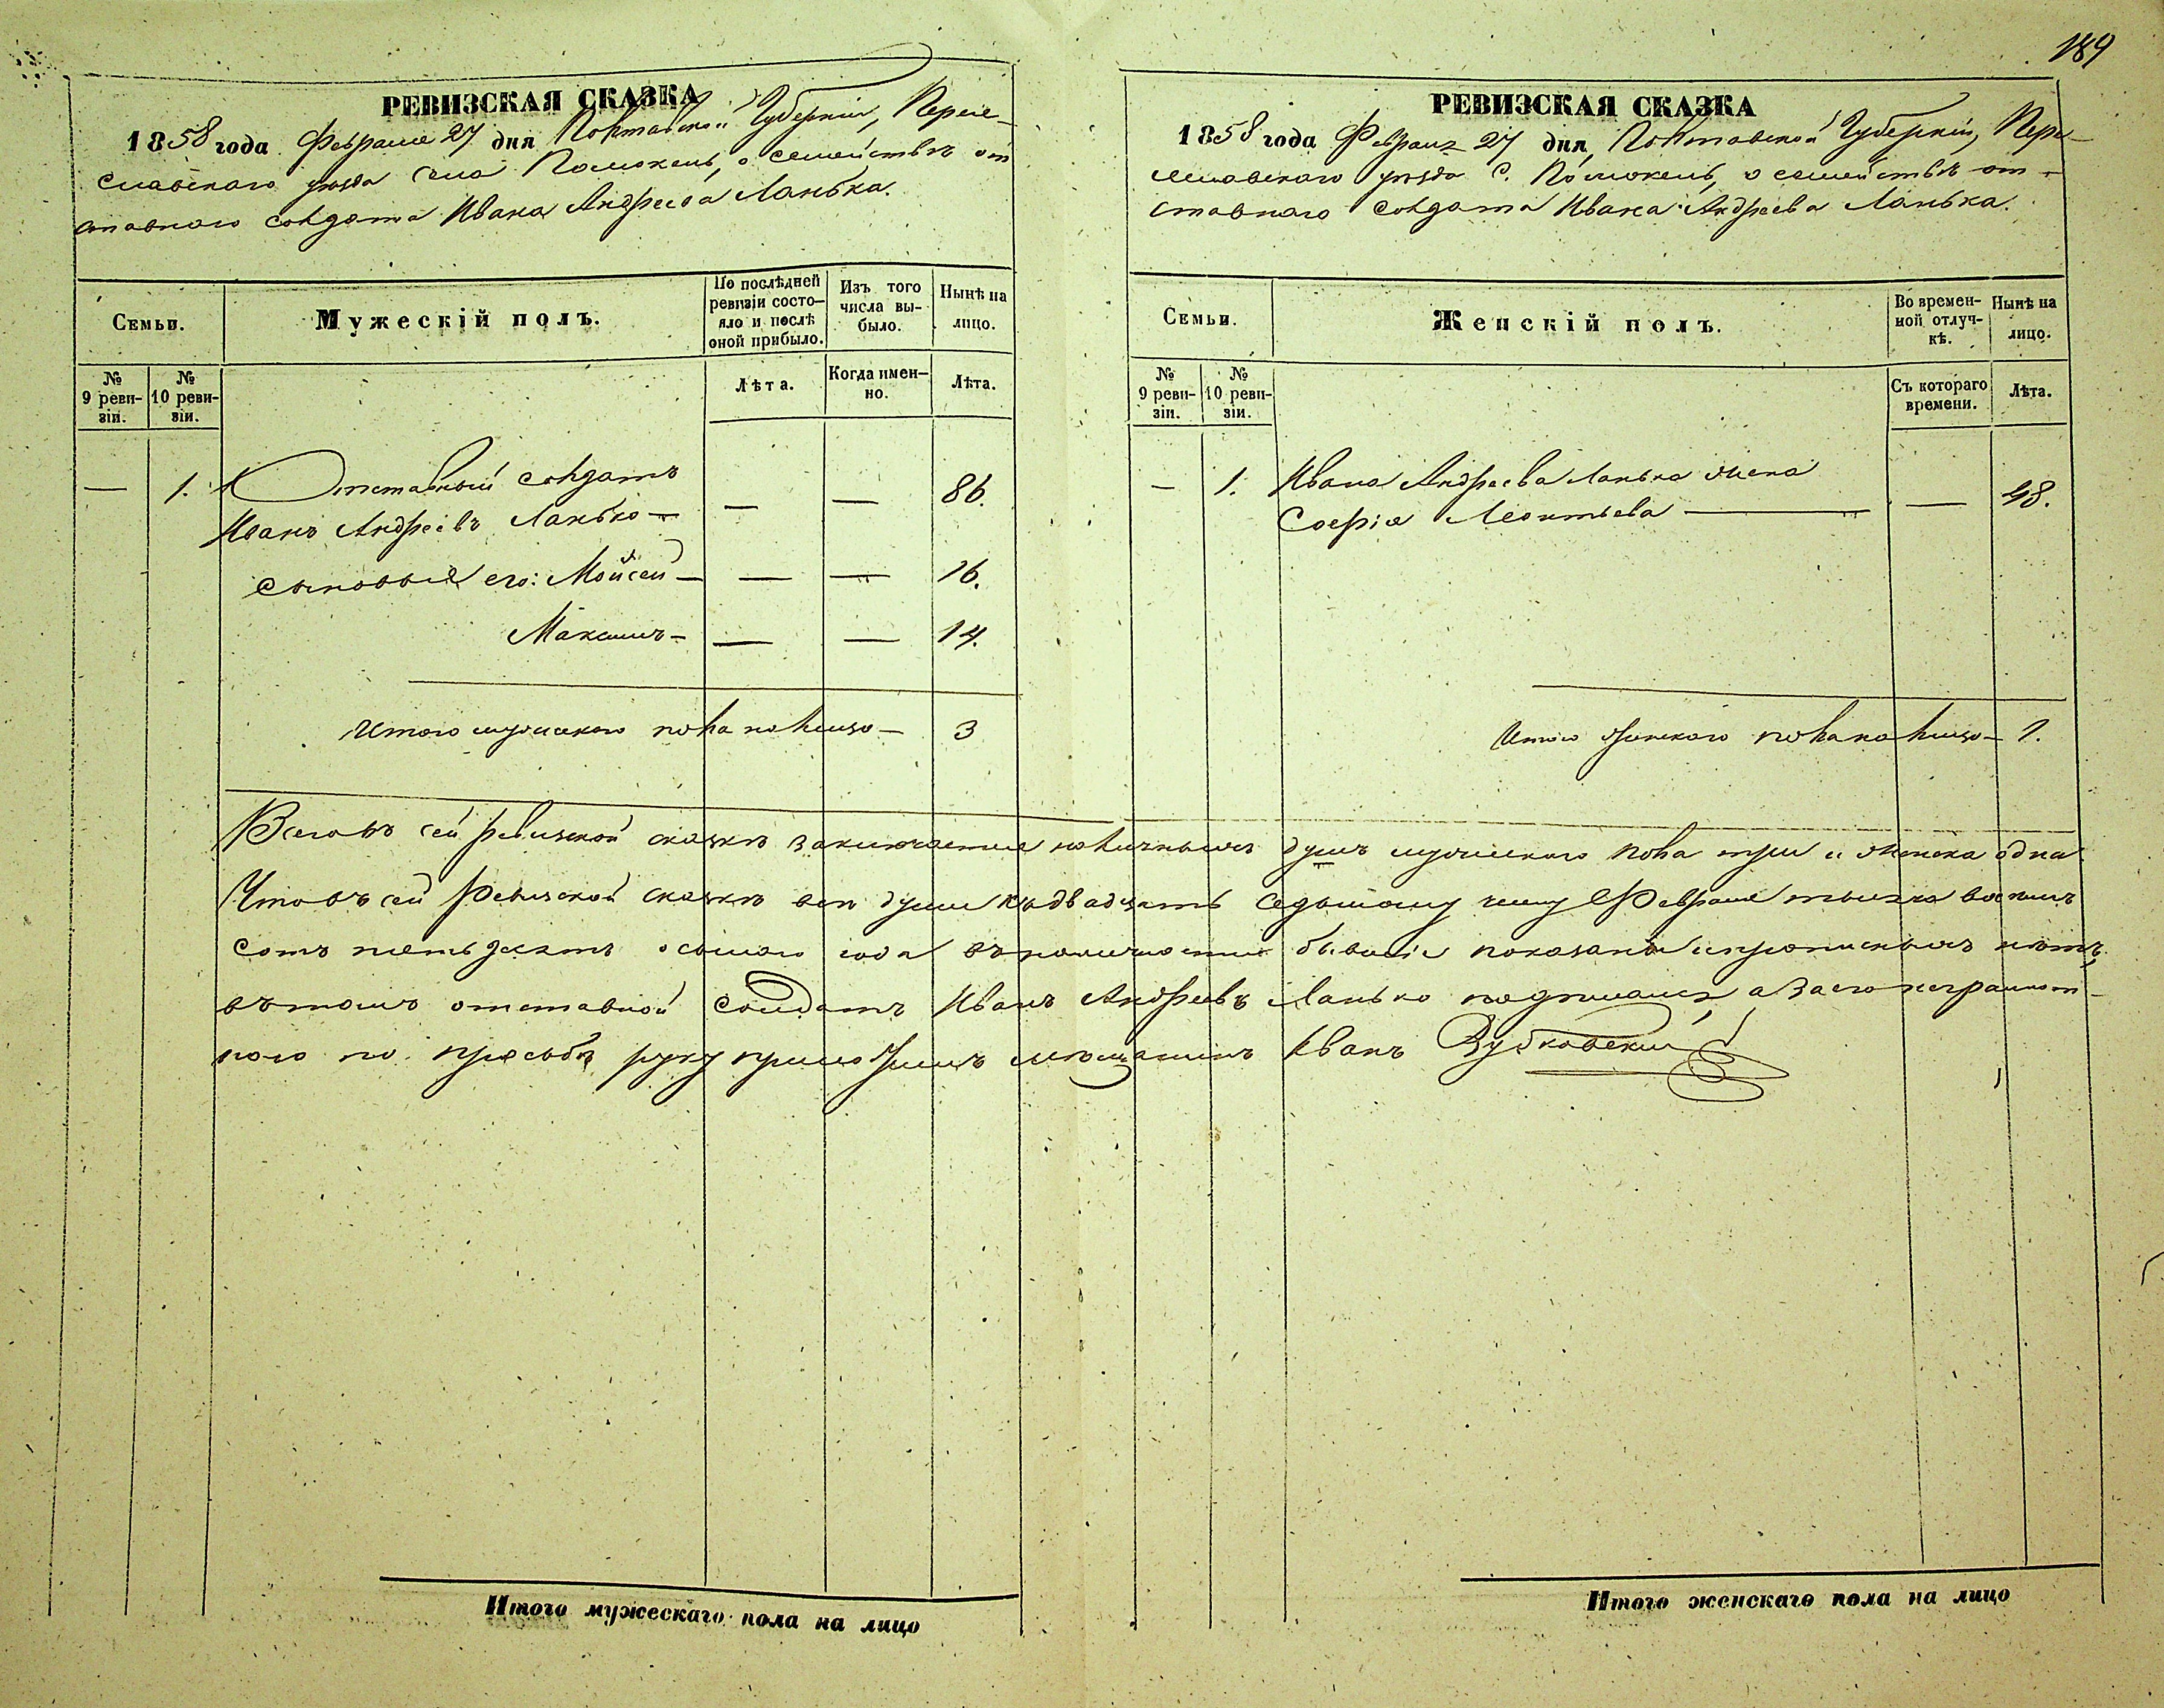 189
РЕВИЗСКАЯ СКАЗКА
1858 года Февраля 27 дня Полтавской Губерніи, Перея-
славскаго уѣзда села Помокель, о семействѣ от
ставнаго солдата Ивана Андреева Ланька.
Семьи.
Мужескій полъ.
По послѣдней
ревизіи состо-
яло и послѣ
оной прибыло.
Изъ того
числа вы-
было.
Нынѣ на
лицо.
№
9 реви-
зіи.
№
10 реви-
зіи.
Лѣта.
Когда имен-
но.
Лѣта.
— 1. Отставный солдатъ
Иванъ Андреевъ Ланько — — — 86.
сыновья его: Мойсей — — — 16.
Максимъ — — — 14.
Итого мужескаго пола налицо — 3
РЕВИЗСКАЯ СКАЗКА
1858 года Февраля 27 дня Полтавской Губерніи, Пере-
яславскаго уѣзда с. Помокель, о семействѣ от-
ставнаго солдата Ивана Андреева Ланька.
Семьи.
Женскій полъ.
Во времен-
ной отлуч-
кѣ.
Нынѣ на
лицо.
№
9 реви-
зіи.
№
10 реви-
зіи.
Съ котораго
времени.
Лѣта.
— 1. Ивана Андреева Ланька жена
Софія Леонтьева — — 48.
Итого женскаго пола налицо — 1.
Всего въ сей ревизской сказкѣ заключается наличныхъ душъ мужескаго пола три и женска одна
Что въ сей Ревизской сказкѣ всѣ души къ двадцать седьмому числу Февраля тысяча восемь
сотъ пятьдесятъ осьмаго года въ наличности бывшіе показаны и прописныхъ нѣтъ,
въ томъ отставной солдатъ Иванъ Андреевъ Ланько подписался, а за его неграмот-
наго по прозьбѣ руку приложилъ мѣщанинъ Иванъ Зубковскій
Итого мужескаго пола на лицо
Итого женскаго пола на лицо